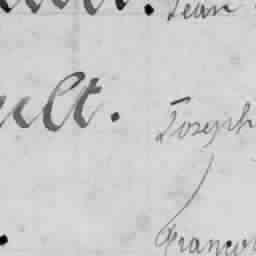 Jean
ult. Joseph
Françoi